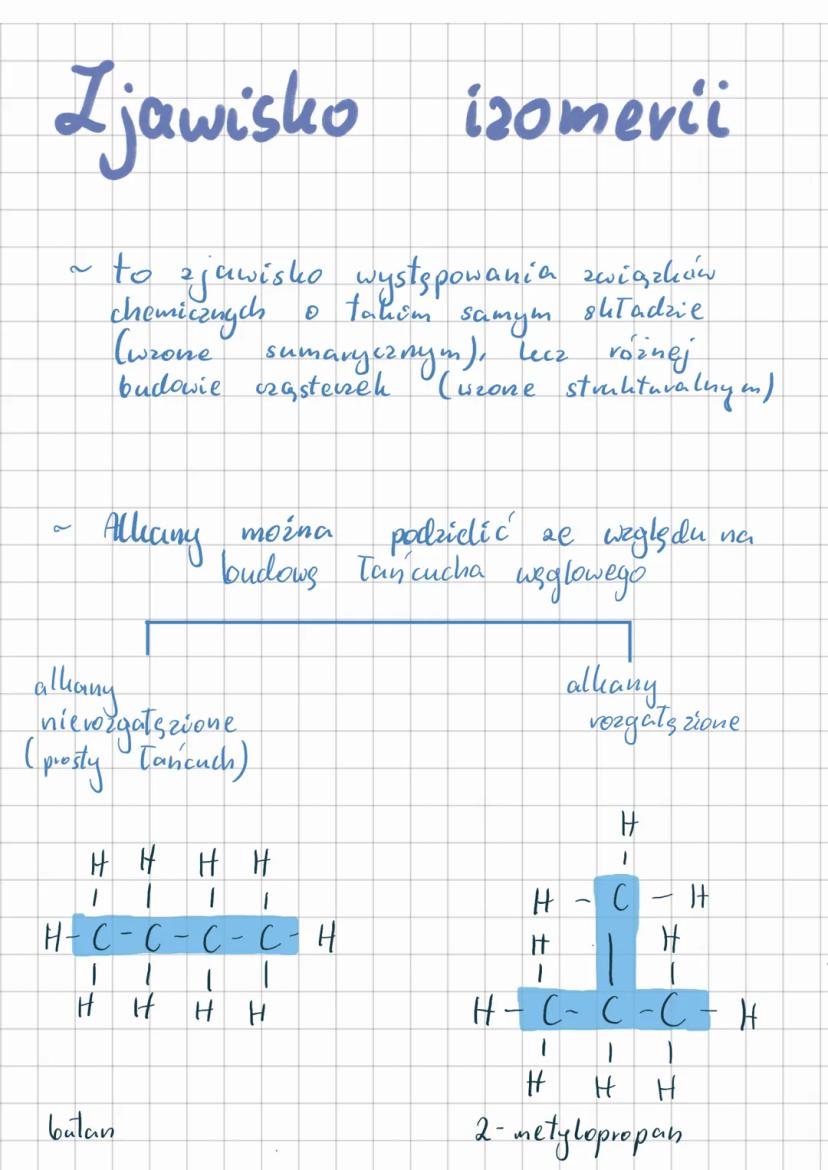 Zjawisko izomerii
~ to zjawisko występowania związków
chemicznych o takim samym składzie
(wzorze sumarycznym), lecz różnej
budowie cząsteczek (wzorze strukturalnym)
~ Alkany można podzielić ze względu na
budowę łańcucha węglowego
alkany
nierozgałęzione
(prosty łańcuch)
alkany
rozgałęzione
H H H H
H-C-C-C-C-H
H H H H
butan
H
H-C-H
H H
H-C-C-C-H
H H H
2-metylopropan